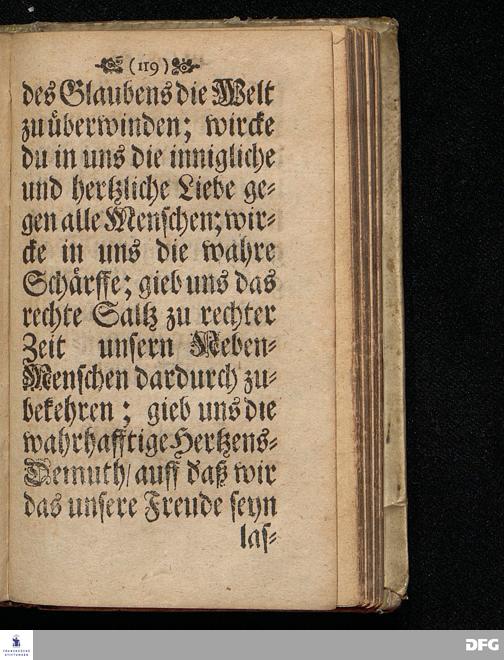 (119)
des Glaubens die Welt
zu überwinden; wircke
du in uns die innigliche
und hertzliche Liebe ge-
gen alle Menschen; wir-
cke in uns die wahre
Schärffe; gieb uns das
rechte Saltz zu rechter
Zeit unsern Neben-
Menschen dardurch zu-
bekehren; gieb uns die
wahrhafftige Hertzens-
Demuth/ auff daß wir
das unsere Freude seyn
las-
FRANCKESCHE
STIFTUNGEN
DFG